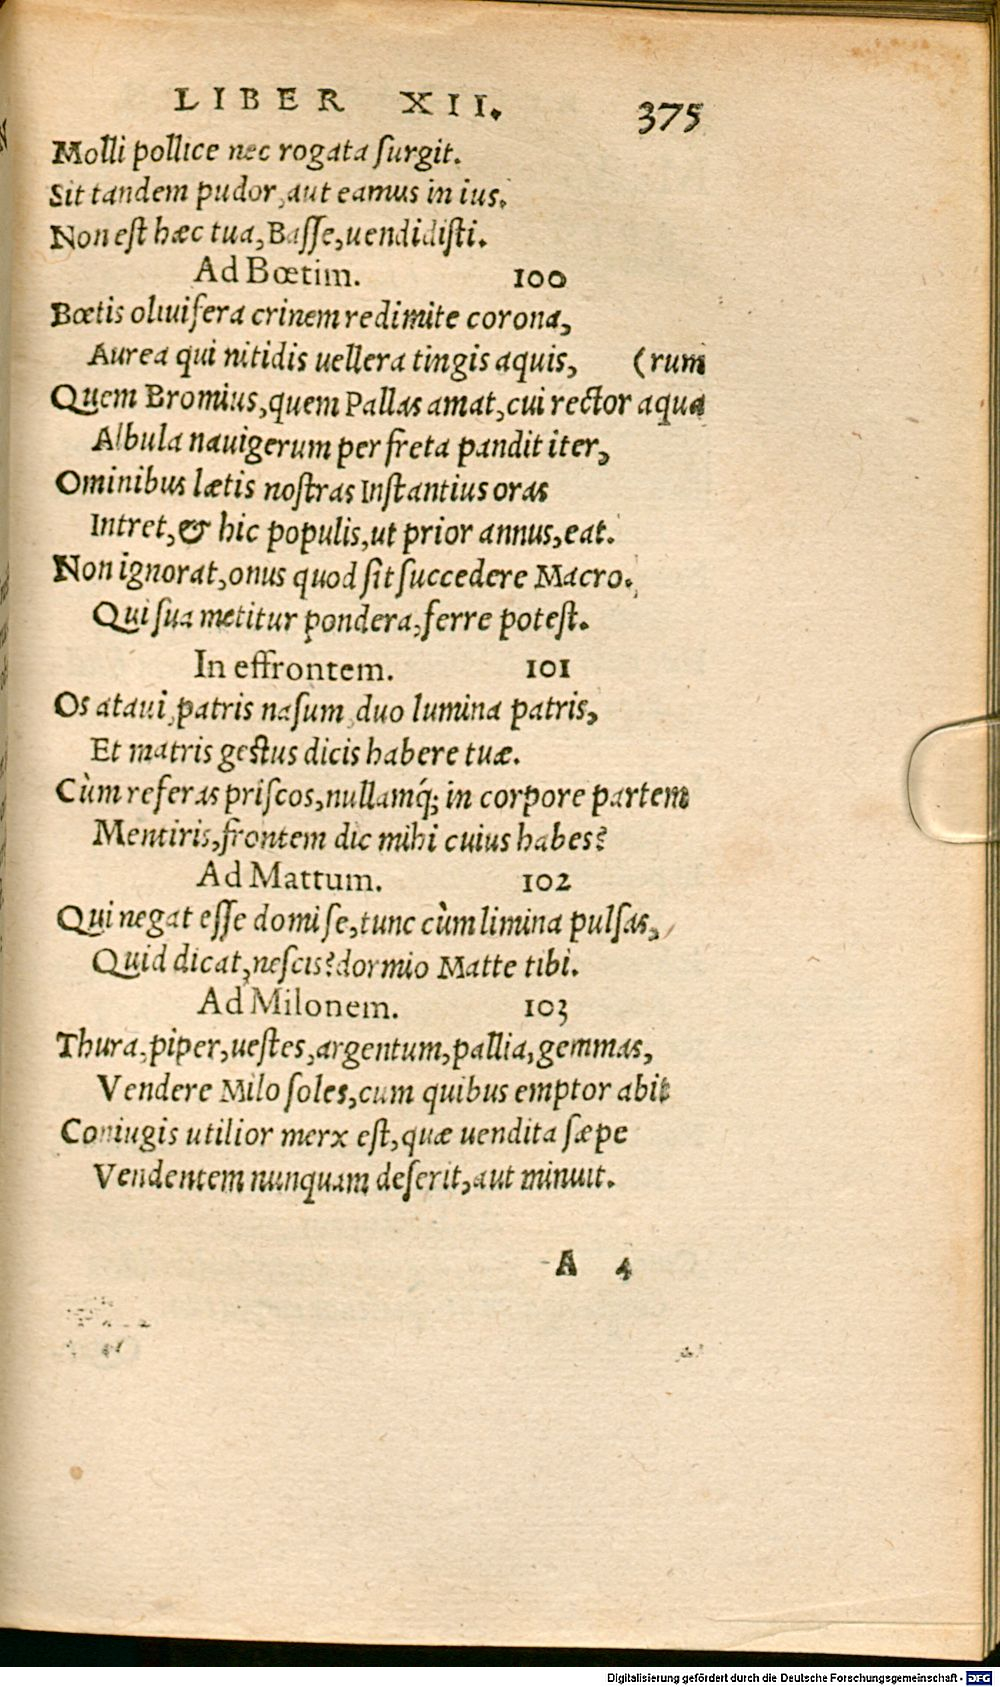 LIBER XII. 375
Molli pollice nec rogata surgit.
Sit tandem pudor, aut eamus in ius.
Non est hæc tua, Basse, uendidisti.
Ad Bœtim. 100
Bœtis oliuifera crinem redimite corona,
Aurea qui nitidis uellera tingis aquis, (rum
Quem Bromius, quem Pallas amat, cui rector aqua
Albula nauigerum per freta pandit iter,
Ominibus lætis nostras Instantius oras
Intret, & hic populis, ut prior annus, eat.
Non ignorat, onus quod sit succedere Macro.
Qui sua metitur pondera, ferre potest.
In effrontem. 101
Os ataui, patris nasum, duo lumina patris,
Et matris gestus dicis habere tuæ.
Cùm referas priscos, nullamq́; in corpore partem
Mentiris, frontem dic mihi cuius habes?
Ad Mattum. 102
Qui negat esse domi se, tunc cùm limina pulsas,
Quid dicat, nescis? dormio Matte tibi.
Ad Milonem. 103
Thura, piper, uestes, argentum, pallia, gemmas,
Vendere Milo soles, cum quibus emptor abit
Coniugis utilior merx est, quæ uendita sæpe
Vendentem nunquam deserit, aut minuit.
A 4
Digitalisierung gefördert durch die Deutsche Forschungsgemeinschaft - DFG